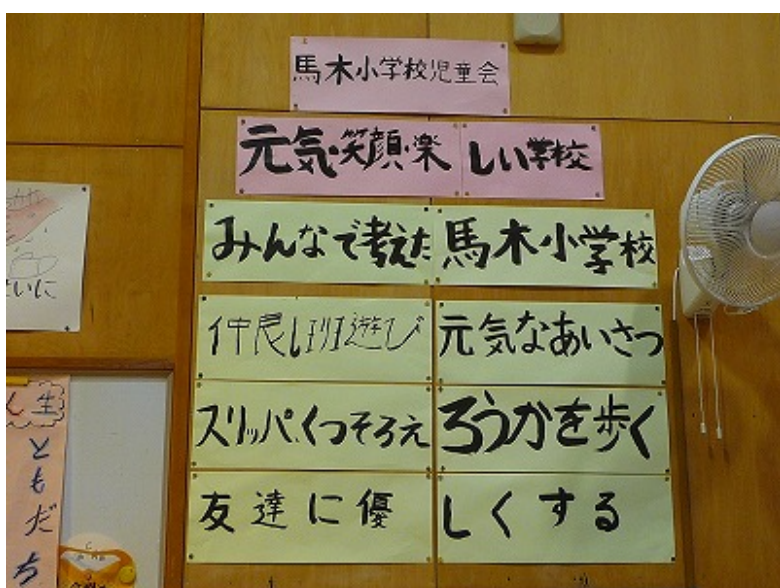 馬木小学校児童会
元気・笑顔・楽しい学校
みんなで考えた馬木小学校
仲良し班遊び 元気なあいさつ
スリッパ、くつそろえ ろうかを歩く
友達に優しくする
いに
生
ともだち